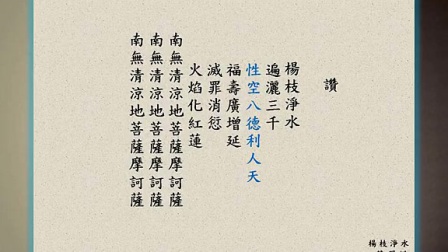 讚
楊枝淨水
遍灑三千
性空八德利人天
福壽廣增延
滅罪消愆
火焰化紅蓮
南無清涼地菩薩摩訶薩
南無清涼地菩薩摩訶薩
南無清涼地菩薩摩訶薩
楊枝淨水